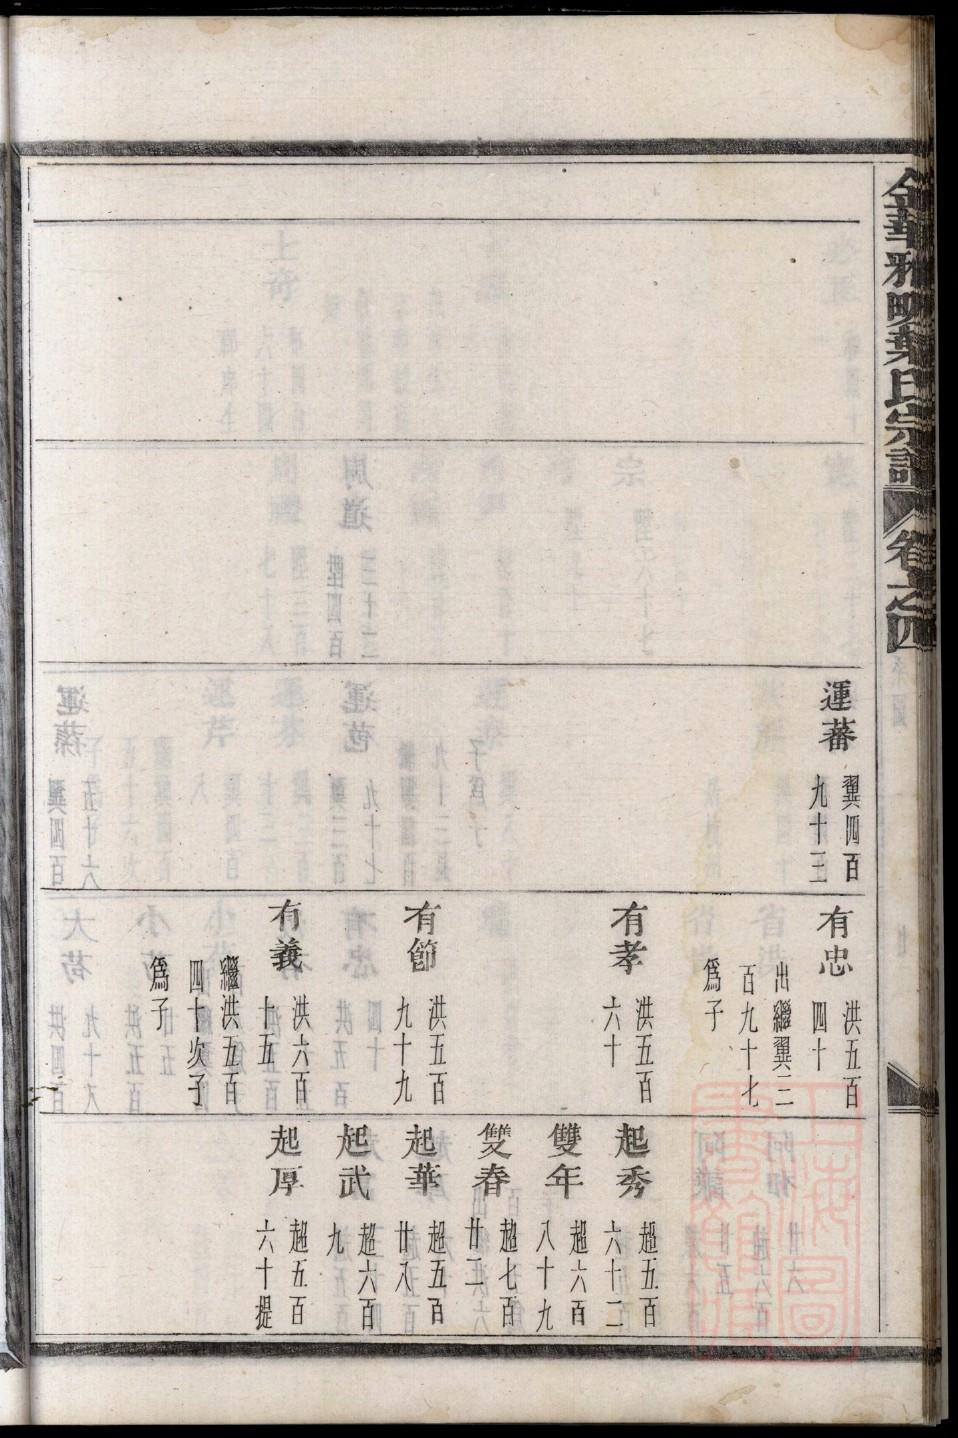 金華雅畈葉氏宗譜
卷之四
運蕃
翼四百
九十三
有忠
洪五百
四十
出繼翼三
百九十七
爲子
有孝
洪五百
六十
有節
洪五百
九十九
有義
洪六百
十五
繼洪五百
四十次子
爲子
起秀
超五百
六十二
雙年
超六百
八十九
雙春
超七百
廿二
起華
超五百
廿八
起武
超六百
九
起厚
超五百
六十提